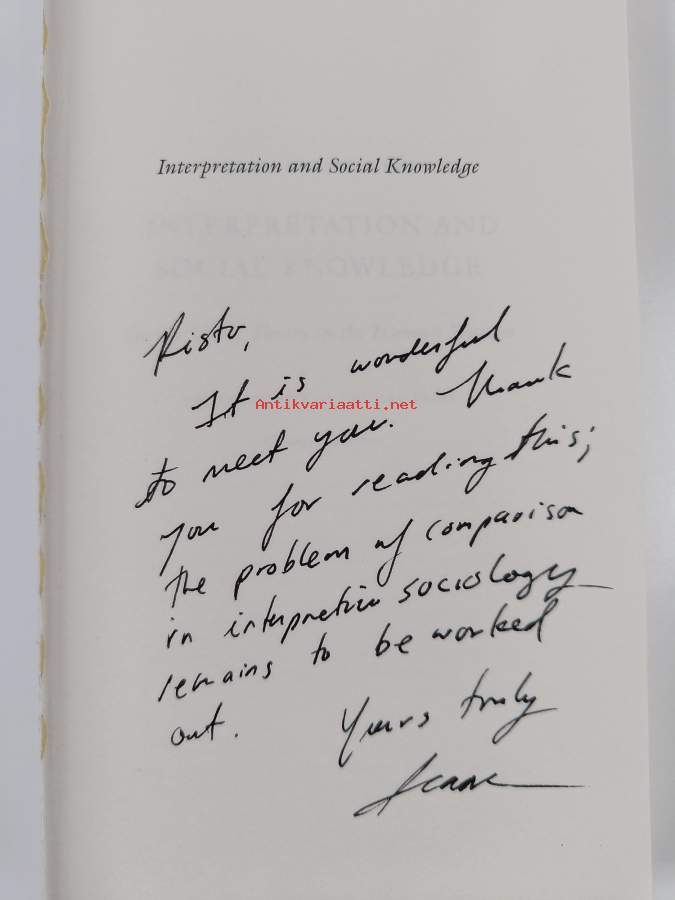 Interpretation and Social Knowledge
INTERPRETATION AND
SOCIAL KNOWLEDGE
Risto,
It is wonderful
Antikvariaatti.net
to meet you. Thank
you for reading this;
the problem of comparison
in interpretive sociology
remains to be worked
out. Yours truly
Isaac